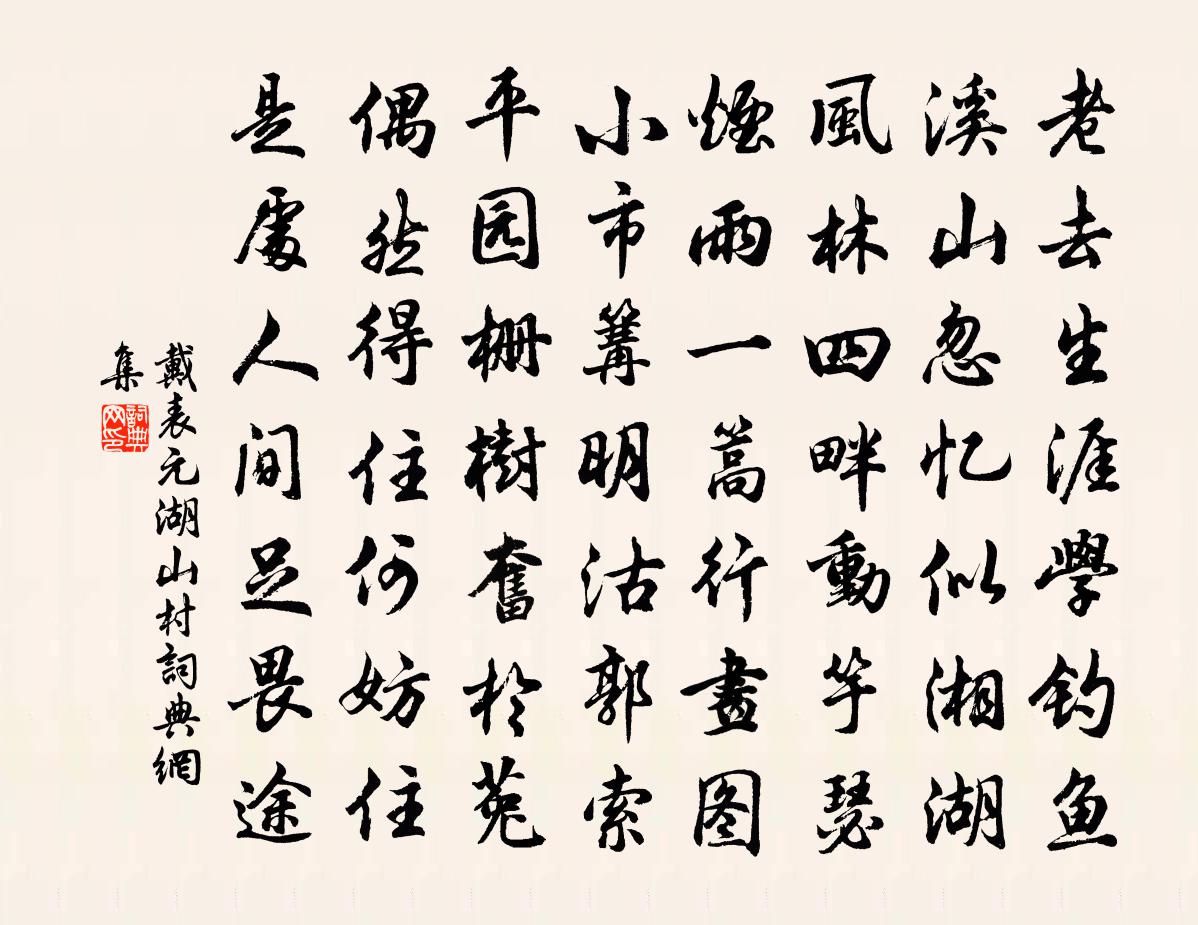 老去生涯學钓鱼
溪山忽忆似湘湖
風林四畔動竽瑟
煙雨一蒿行畫图
小市篝明沽郭索
平园栅樹奮於菟
偶然得住何妨住
是處人间足畏途
戴表元湖山村詞典網
集
詞典网印